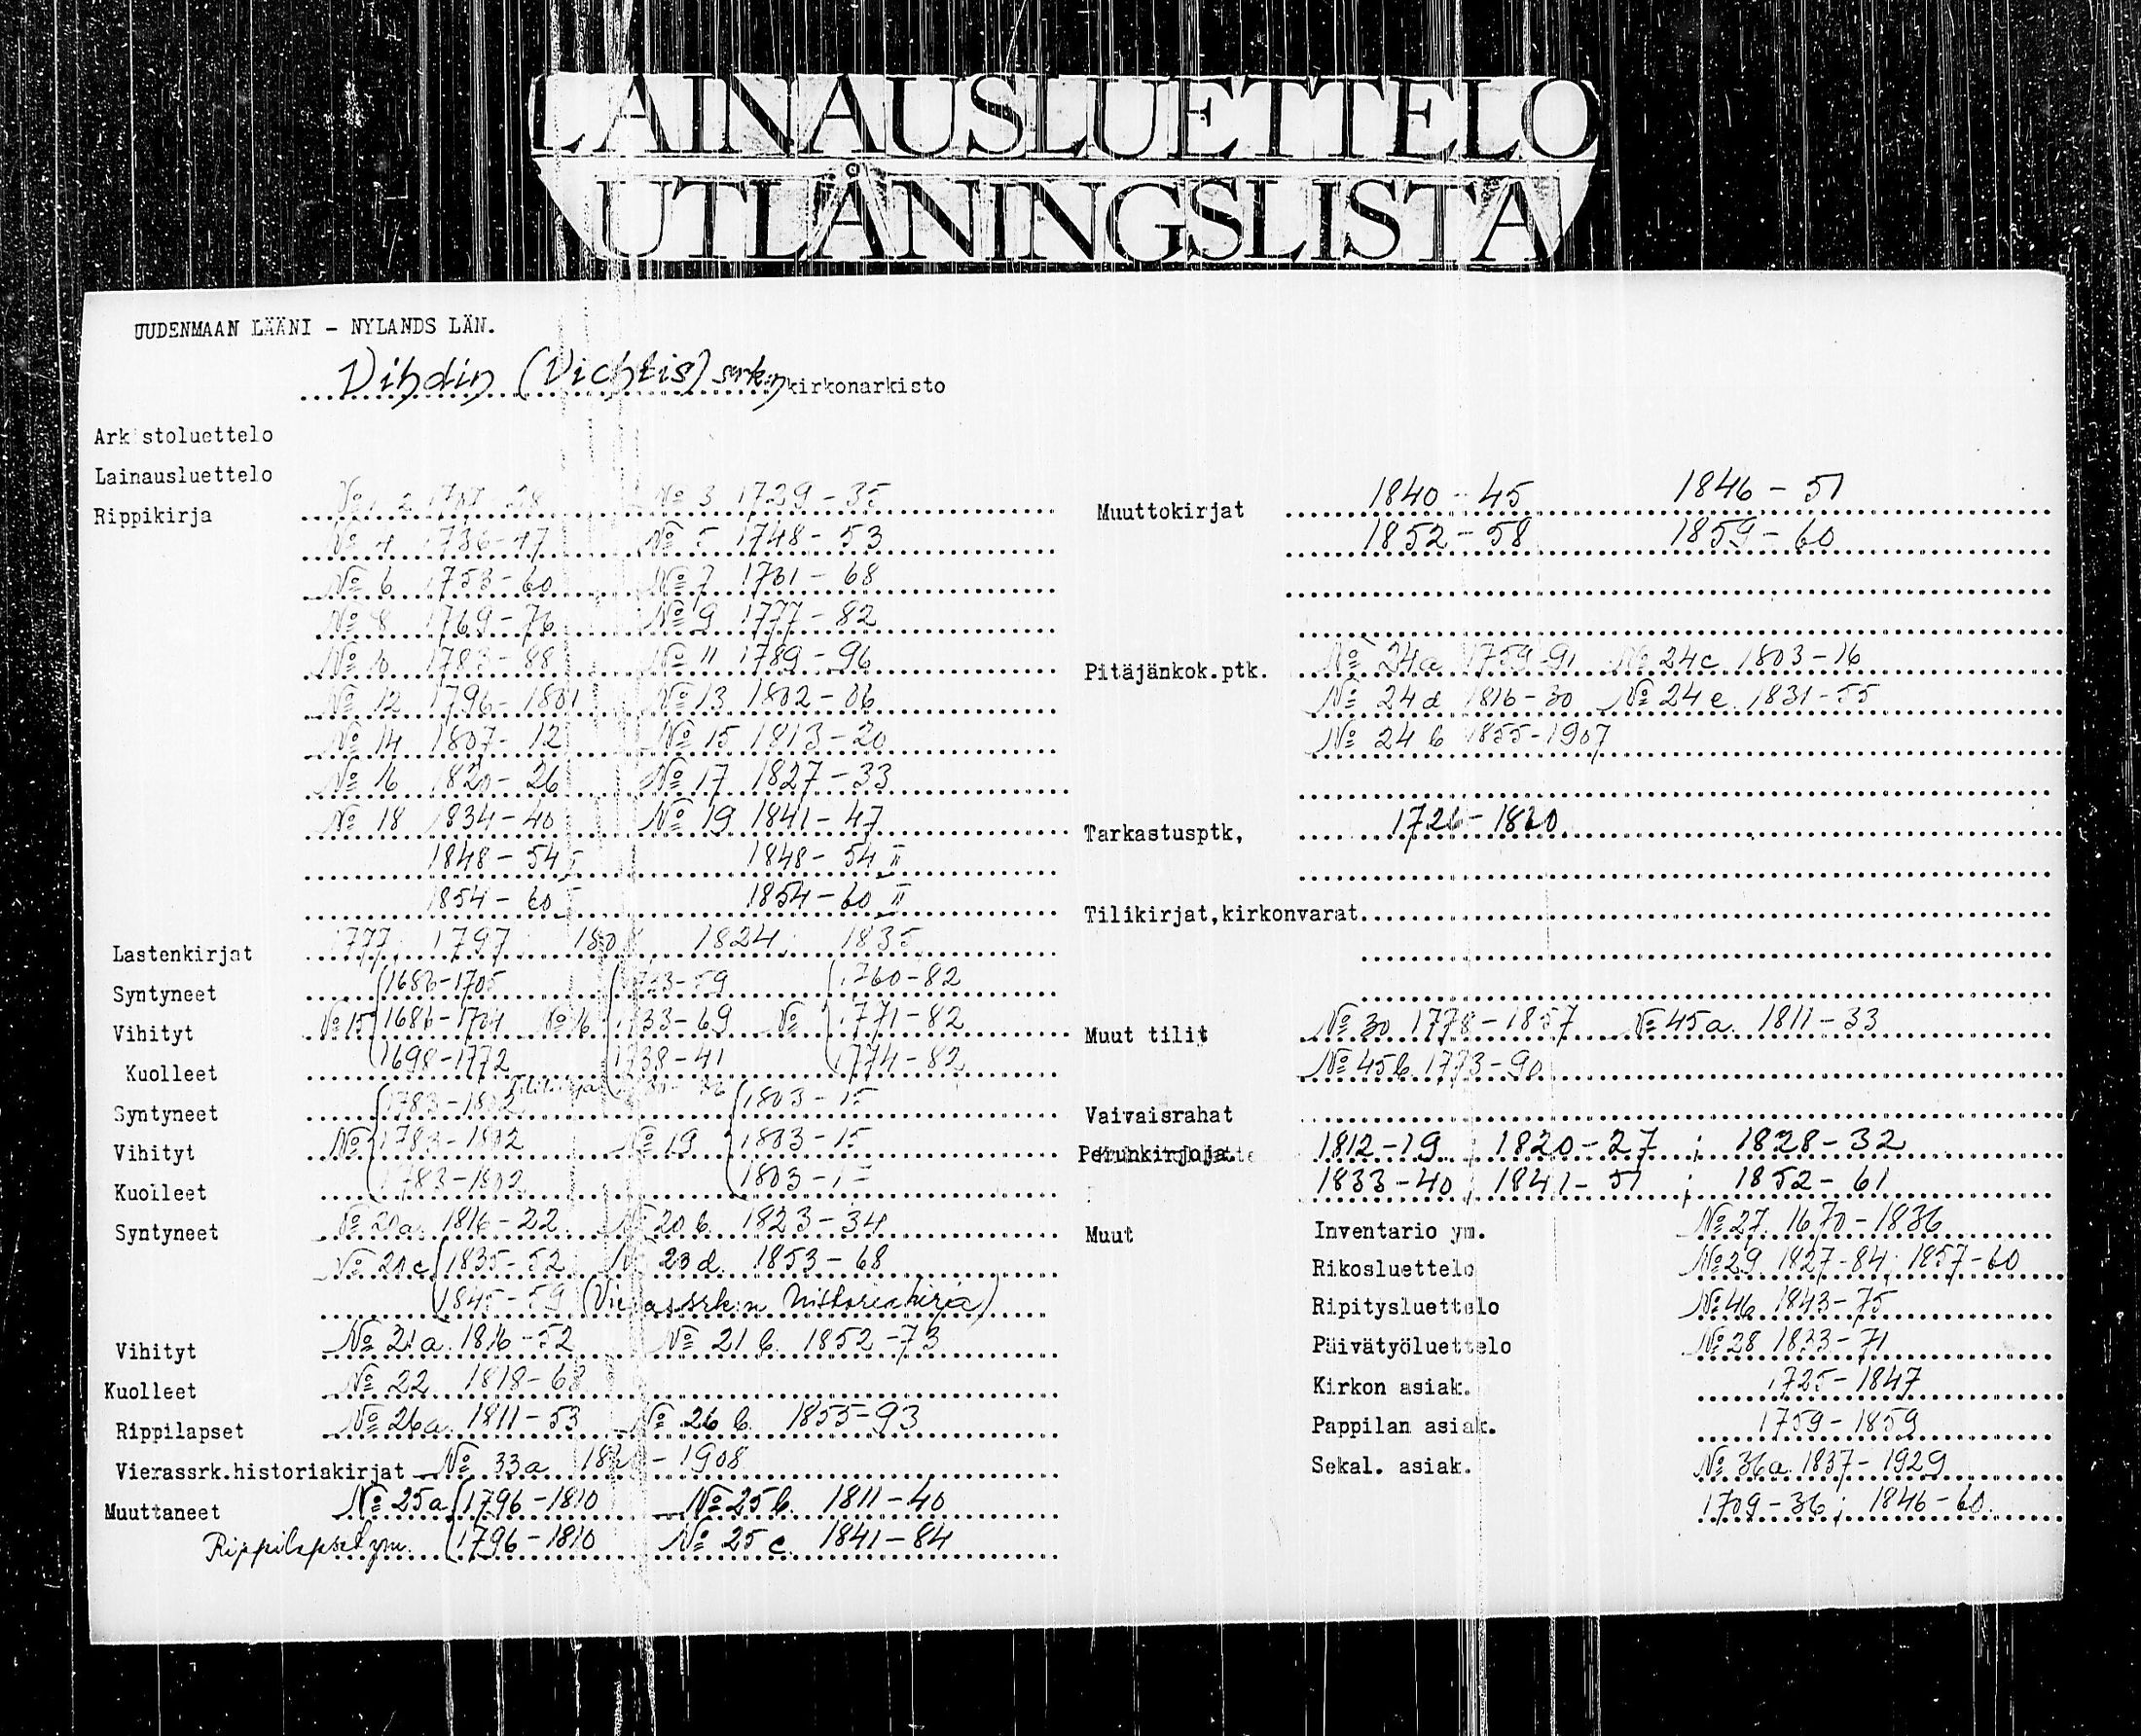 LAINAUSLUETTELO
UTLÅNINGSLISTA
UUDENMAAN LÄÄNI - NYLANDS LÄN.
Vihdin (Vichtis) srk:n kirkonarkisto
Arkistoluettelo
Lainausluettelo
Rippikirja № 3 1729-35
№ 4 1736-47 № 5 1748-53
№ 6 1753-60 № 7 1761-68
№ 8 1769-76 № 9 1777-82
№ 10 1783-88 № 11 1789-96
№ 12 1796-1801 № 13 1802-06
№ 14 1807-12 № 15 1813-20
№ 16 1820-26 № 17 1827-33
№ 18 1834-40 № 19 1841-47
1848-54 I 1848-54 II
1854-60 I 1854-60 II
Lastenkirjat 1777 1797 1824 1835
Syntyneet 1686-1705 1760-82
Vihityt № 15 1686-1704 № 16 1733-69 № 1771-82
Kuolleet 1698-1772 1738-41 1774-82
Syntyneet 1783-1802 1803-15
Vihityt № 1783-1802 № 19 1803-15
Kuolleet 1783-1802 1803-
Syntyneet № 20a. 1816-22 № 20 b. 1823-34
№ 20c 1835-52 № 23 d. 1853-68
1845-59 (Vierassrk:n historiakirja)
Vihityt № 21a. 1816-52 № 21 b. 1852-73
Kuolleet № 22 1818-68
Rippilapset № 26a. 1811-53 № 26 b. 1853-93
Vierassrk.historiakirjat № 33a -1908
Muuttaneet № 25a 1796-1810 № 25 b. 1811-40
Rippilapset ym. 1796-1810 № 25 c. 1841-84
Muuttokirjat 1840-45 1846-51
1852-58 1859-60
Pitäjänkok.ptk. № 24a 1759-91 № 24c 1803-16
№ 24 d 1816-30 № 24 e. 1831-55
№ 24 b 1855-1907
Tarkastusptk,
Tilikirjat,kirkonvarat
Muut tilit № 30 1778-1857 № 45a. 1811-33
№ 45b. 1773-90
Vaivaisrahat
Perunkirjoja. 1812-19 ; 1820-27 ; 1828-32
1833-40 ; 1841-51 ; 1852-61
Muut Inventario ym. № 27. 1670-1836
Rikosluettelo № 29 1827-84; 1857-60
Ripitysluettelo № 46. 1843-75
Päivätyöluettelo № 28 1833-71
Kirkon asiak. 1725-1847
Pappilan asiak. 1759-1859
Sekal. asiak. № 36a. 1837-1929
1709-36; 1846-60.